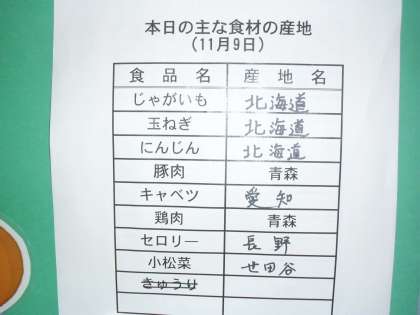 本日の主な食材の産地
(11月9日)
食品名 産地名
じゃがいも 北海道
玉ねぎ 北海道
にんじん 北海道
豚肉 青森
キャベツ 愛知
鶏肉 青森
セロリー 長野
小松菜 世田谷
きゅうり